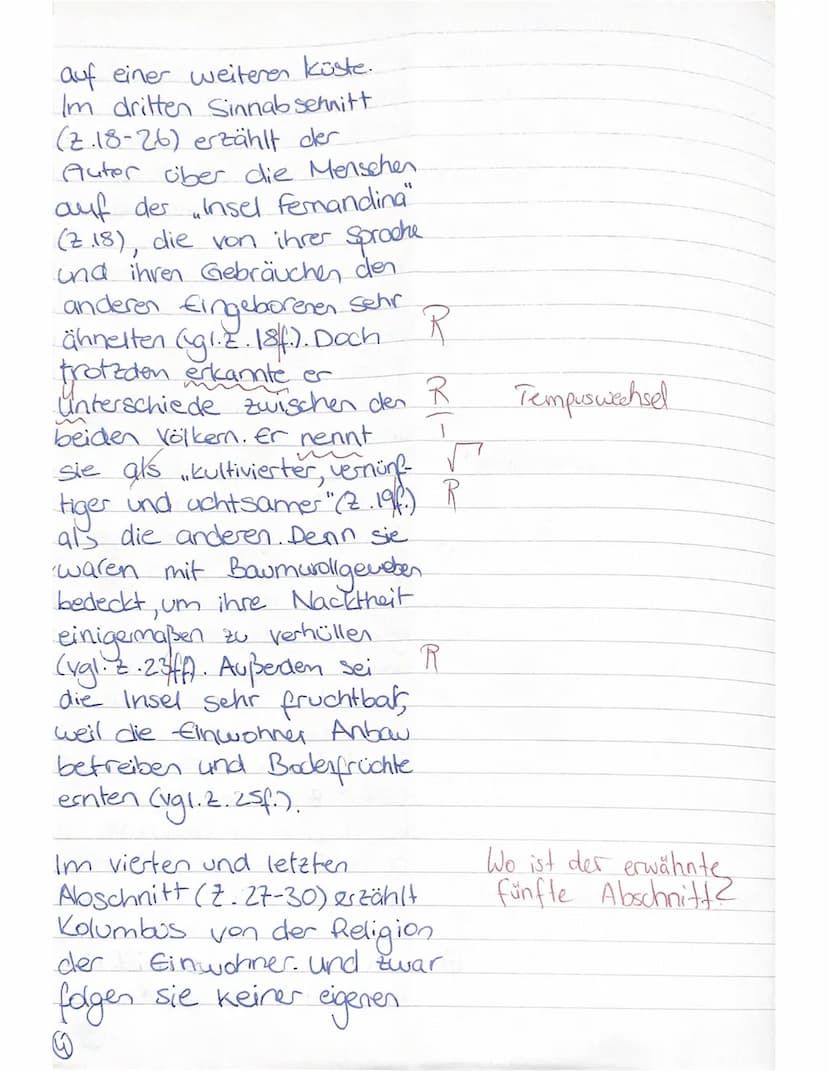 auf einer weiteren Küste.
Im dritten Sinnabschnitt
(Z.18-26) erzählt der
Autor über die Menschen
auf der „Insel Fernandina"
(Z.18), die von ihrer Sprache
und ihren Gebräuchen den
anderen Eingeborenen sehr
ähnelten (vgl. Z. 18f.). Doch R
trotzdem erkannte er
Unterschiede zwischen den R Tempuswechsel
beiden Völkern. Er nennt
sie als „kultivierter, vernünf- √
tiger und achtsamer" (Z.19f.) R
als die anderen. Denn sie
waren mit Baumwollgeweben
bedeckt, um ihre Nacktheit
einigermaßen zu verhüllen
(vgl. Z.23ff). Außerdem sei R
die Insel sehr fruchtbar,
weil die Einwohner Anbau
betreiben und Bodenfrüchte
ernten (vgl. Z. 25f.).
Im vierten und letzten Wo ist der erwähnte
Abschnitt (Z. 27-30) erzählt fünfte Abschnitt?
Kolumbus von der Religion
der Einwohner. und zwar
folgen sie keiner eigenen
④